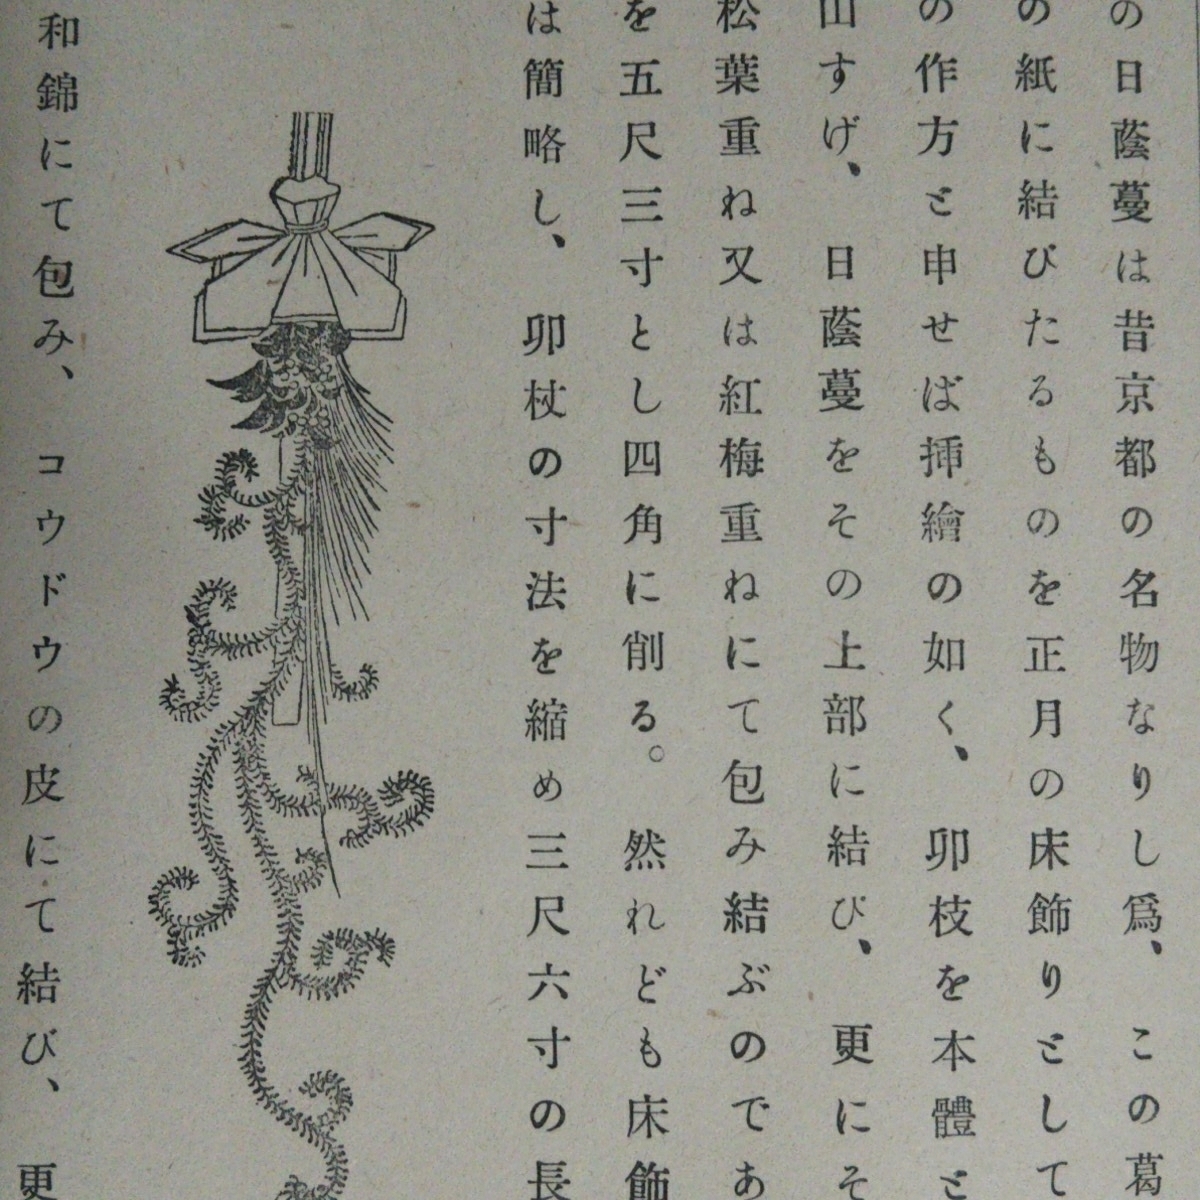 の日蔭蔓は昔京都の名物なりし爲、この葛
の紙に結びたるものを正月の床飾りとして
の作方と申せば挿繪の如く、卯枝を本體と
山すげ、日蔭蔓をその上部に結び、更にそ
松葉重ね又は紅梅重ねにて包み結ぶのであ
を五尺三寸とし四角に削る。然れども床飾
は簡略し、卯杖の寸法を縮め三尺六寸の長
和錦にて包み、コウドウの皮にて結び、更